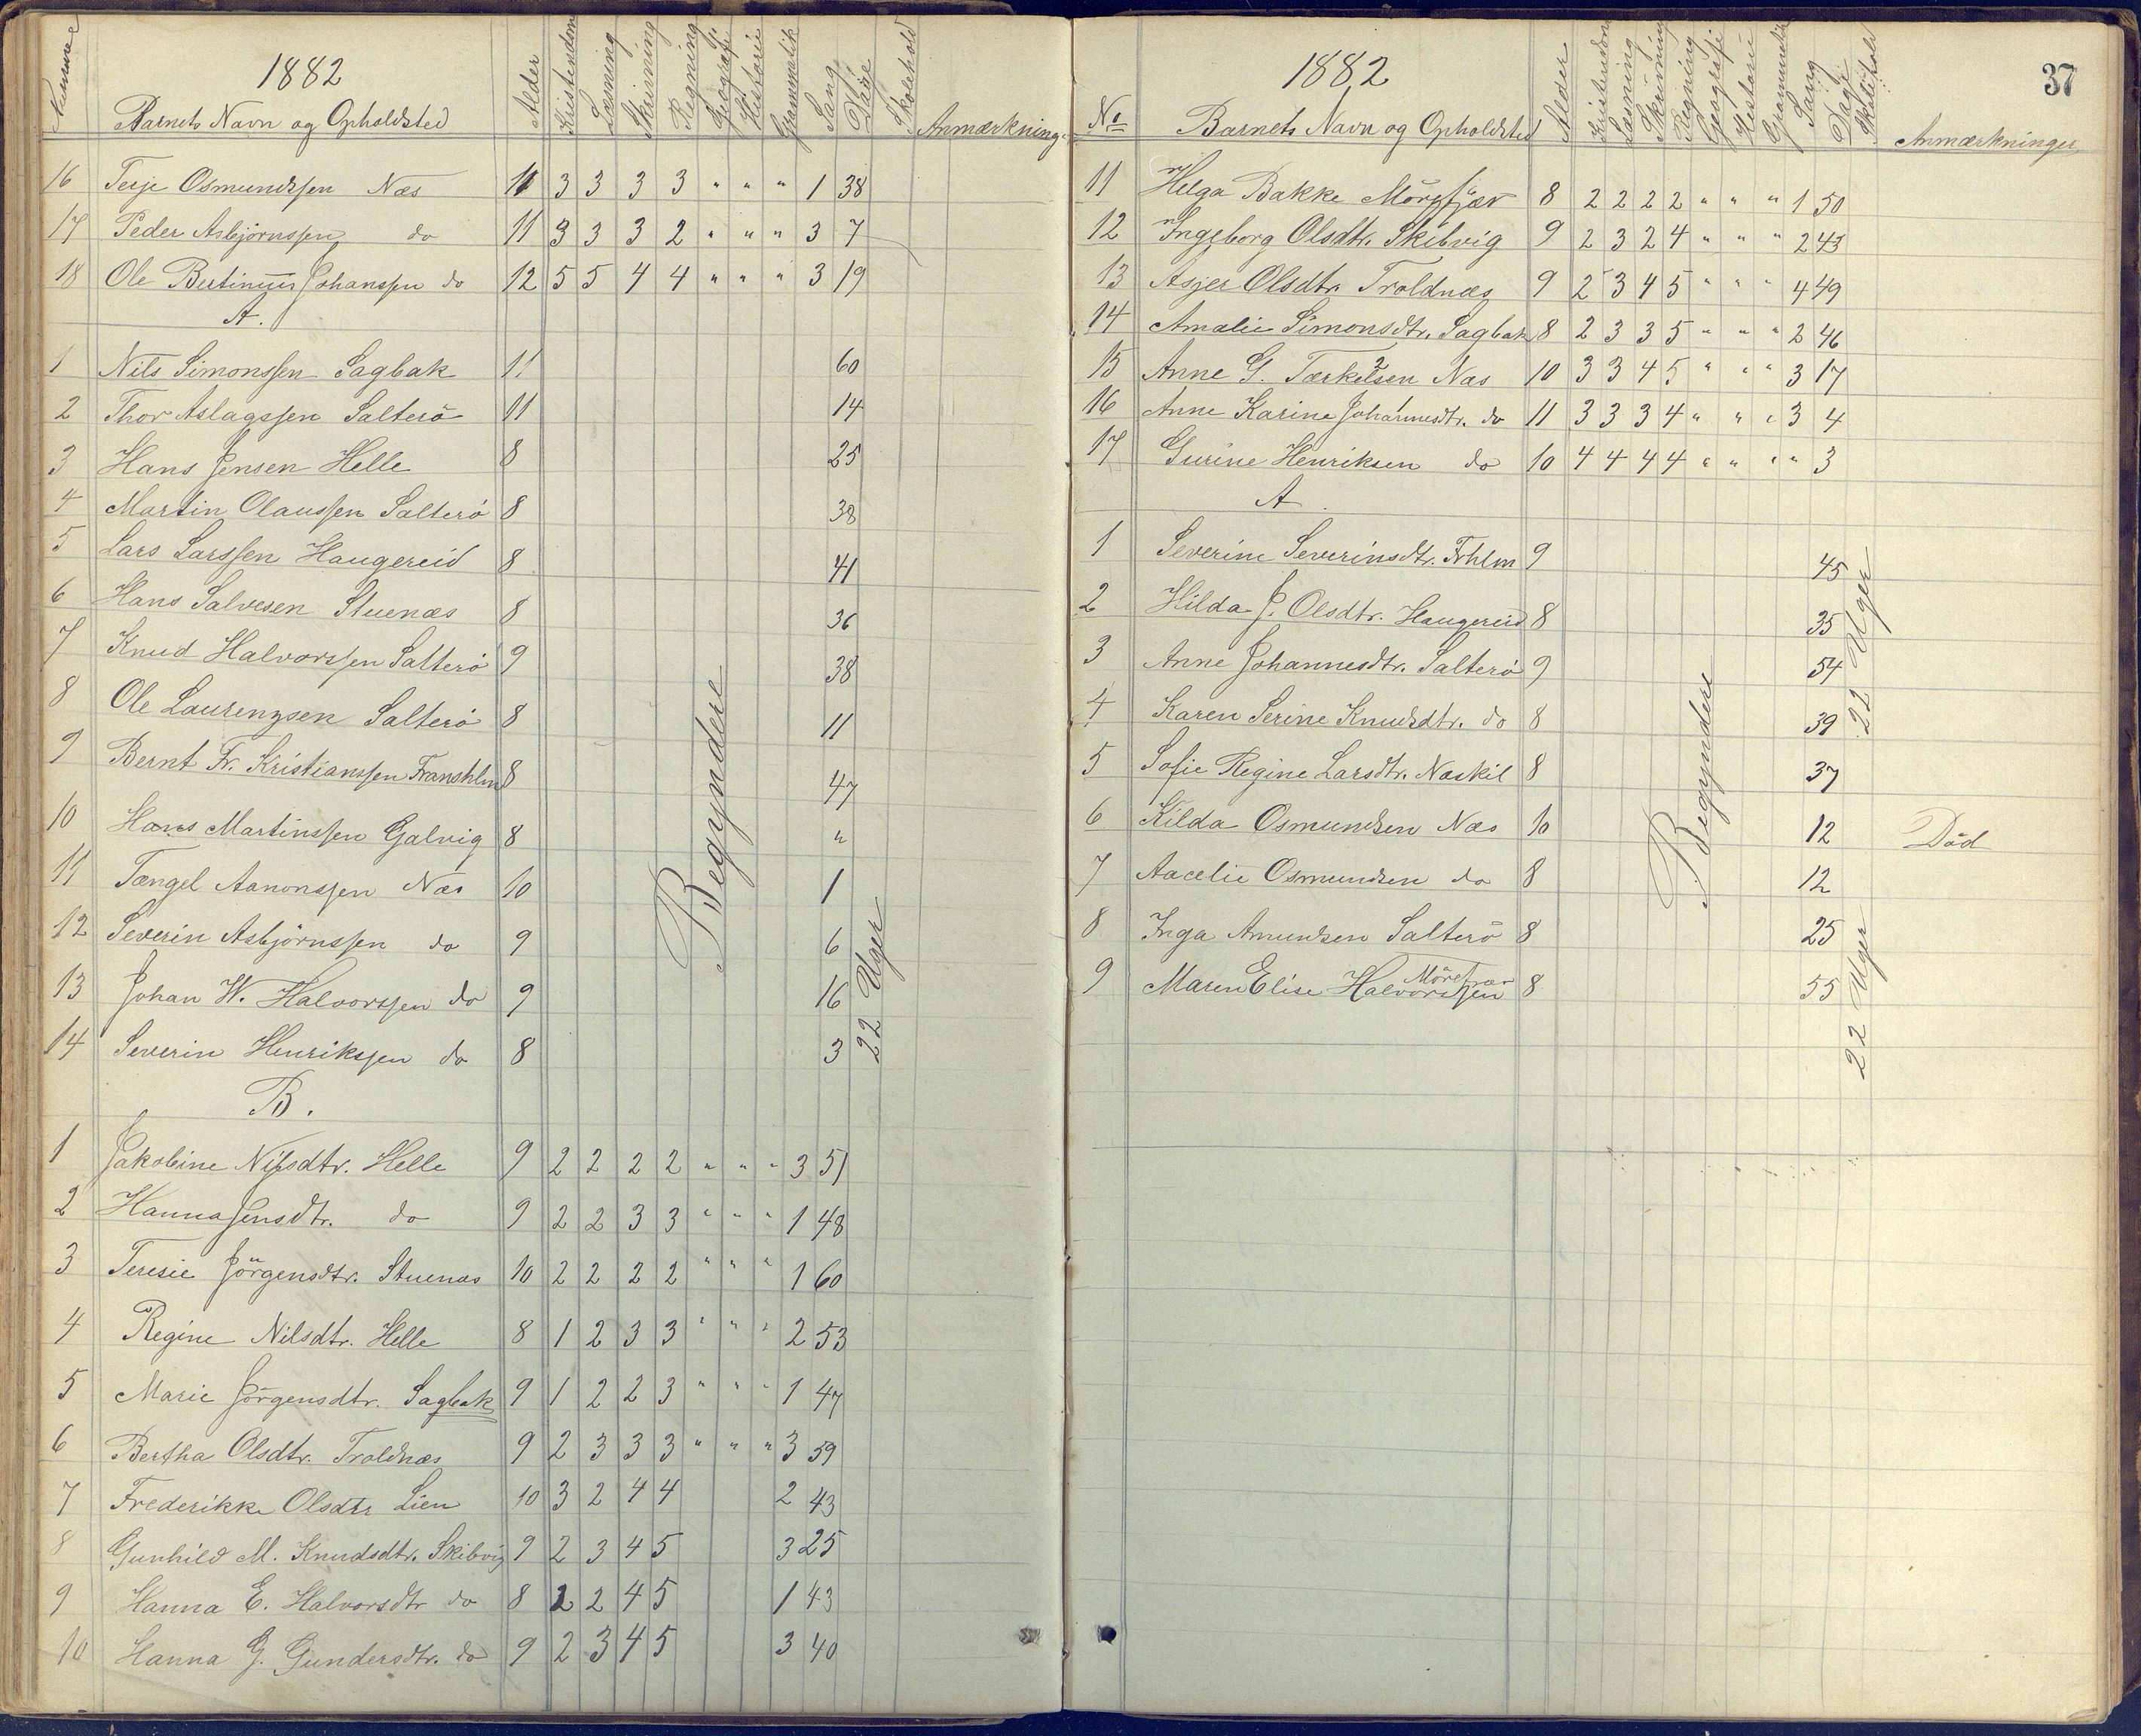 1882
Nummer Barnets Navn og Opholdsted Alder Kristendom Læsning Skrivning Regning Geografi Historie Grammatik Sang Dage Skolehold Anmærkning
16 Terje Osmundssen Næs 11 3 3 3 3 " " " 1 38
17 Peder Asbjörnssen do 11 3 3 3 2 " " " 3 7
18 Ole Bertinius Johanssen do 12 5 5 4 4 " " " 3 19
A.
1 Nils Simonssen Sagbak 11 60
2 Thor Aslagssen Salterö 11 14
3 Hans Jensen Helle 8 25
4 Martin Olaussen Salterö 8 38
5 Lars Larssen Haugereid 8 41
6 Hans Salvesen Stuenæs 8 36
7 Knud Halvorssen Salterö 9 38
8 Ole Laurenzsen Salterö 8 11
9 Bernt Fr. Kristianssen Franshlm 8 47
10 Hans Martinssen Galvig 8 "
11 Tængel Aanonssen Næs 10 1
12 Severin Asbjörnssen do 9 6
13 Johan W. Halvorssen do 9 16
14 Severin Henrikssen do 8 3
Begyndere
22 Uger
B.
1 Jakobine Nilsdtr. Helle 9 2 2 2 2 " " " 3 51
2 Hanna Jensdtr. do 9 2 2 3 3 " " " 1 48
3 Teresie Jörgensdtr. Stuenæs 10 2 2 2 2 " " " 1 60
4 Regine Nilsdtr. Helle 8 1 2 3 3 " " " 2 53
5 Marie Jörgensdtr. Sagbak 9 1 2 2 3 " " " 1 47
6 Bertha Olsdtr. Troldnæs 9 2 3 3 3 " " " 3 59
7 Frederikke Olsdtr Lien 10 3 2 4 4 2 43
8 Gunhild M. Knudsdtr. Skibvig 9 2 3 4 5 3 25
9 Hanna E. Halvorsdtr do 8 2 2 4 5 1 43
10 Hanna G. Gundersdtr. do 9 2 3 4 5 3 40
37
1882
No Barnets Navn og Opholdsted Alder Kristendom Læsning Skrivning Regning Geografi Historie Grammatik Sang Dage Skolehold Anmærkninger
11 Helga Bakke Mörefjær 8 2 2 2 2 " " " 1 50
12 Ingeborg Olsdtr. Skibvig 9 2 3 2 4 " " " 2 43
13 Asjer Olsdtr. Troldnæs 9 2 3 4 5 " " " 4 49
14 Amalie Simonsdtr. Sagbak 8 2 3 3 5 " " " 2 46
15 Anne G. Tærkelsen Næs 10 3 3 4 5 " " " 3 17
16 Anne Karine Johannesdtr. do 11 3 3 3 4 " " " 3 4
17 Gurine Henriksen do 10 4 4 4 4 " " " " 3
A
1 Severine Severinsdtr. Frhlm 9 45
2 Hilda J. Olsdtr. Haugereid 8 35
3 Anne Johannesdtr. Salterö 9 54
4 Karen Serine Knudsdtr. do 8 39
5 Sofie Regine Larsdtr. Næskil 8 37
6 Kilda Osmundsen Næs 10 12 Död
7 Aacelie Osmundsen do 8 12
8 Inga Amundsen Salterö 8 25
9 Maren Elise Halvorssen Mörefjær 8 55
Begyndere
22 Uger
22 Uger